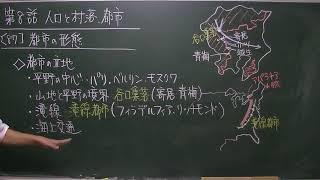 第8話 人口と村落、都市
[57] 都市の形態
◇都市の立地
・平野の中心・パリ、ベルリン、モスクワ
・山地と平野の境界 谷口集落(寄居 青梅)
・滝線 滝線都市(フィラデルフィア、リッチモンド)
・海上交通
谷口集落
寄居
青梅
アパラチア